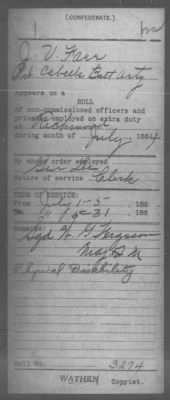 (CONFEDERATE.)
J. V. Farr
Pvt Cabells Batt Arty
Appears on a
ROLL
of non-commissioned officers and
privates employed on extra duty
at Richmond
during month of July, 1864
By whose order employed
Nature of service Clerk
TERM OF SERVICE:
From July 1-5, 186
31, 186
Remarks:
Sgd W. G. Ferguson
Maj Q M
Physical Disability
Roll No. 3274
WATHEN
Copyist.